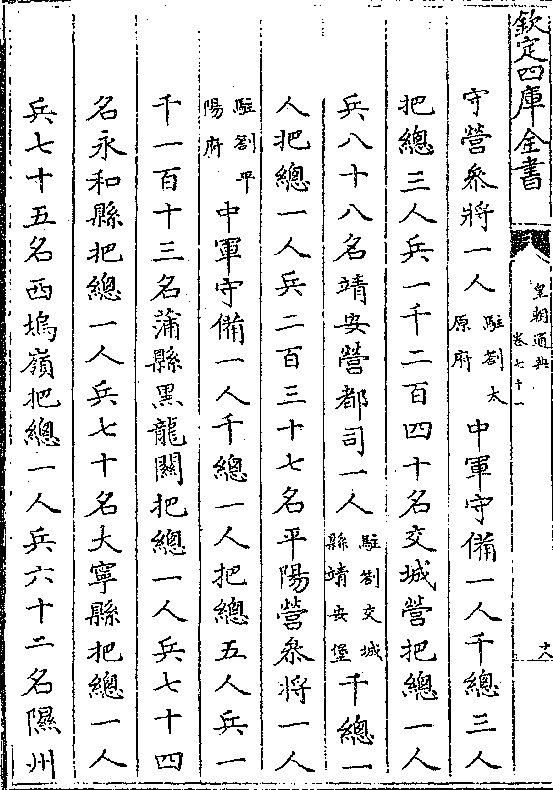 欽定四庫全書
皇朝通典
卷七十一
十八
守營叅將一人駐劄太原府中軍守備一人千總三人
把總三人兵一千二百四十名交城營把總一人
兵八十八名靖安營都司一人駐劄交城縣靖安堡千總一
人把總一人兵二百三十七名平陽營叅將一人
駐劄平陽府中軍守備一人千總一人把總五人兵一
千一百十三名蒲縣黑龍關把總一人兵七十四
名永和縣把總一人兵七十名大寧縣把總一人
兵七十五名西塢嶺把總一人兵六十二名隰州